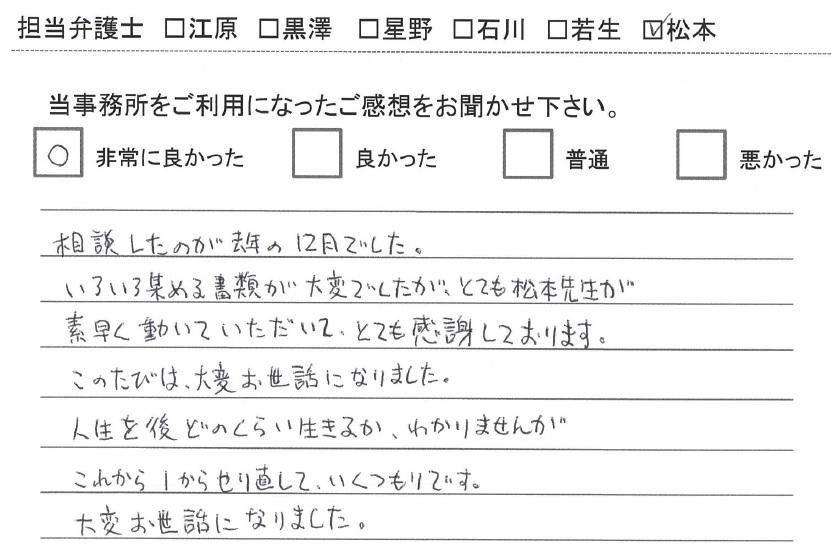 担当弁護士 □江原 □黒澤 □星野 □石川 □若生 ☑松本
当事務所をご利用になったご感想をお聞かせ下さい。
○ 非常に良かった □ 良かった □ 普通 □ 悪かった
相談したのが去年の12月でした。
いろいろ集める書類が大変でしたが、とても松本先生が
素早く動いていただいて、とても感謝しております。
このたびは、大変お世話になりました。
人生を後どのくらい生きるか、わかりませんが
これから1からやり直して、いくつもりです。
大変お世話になりました。